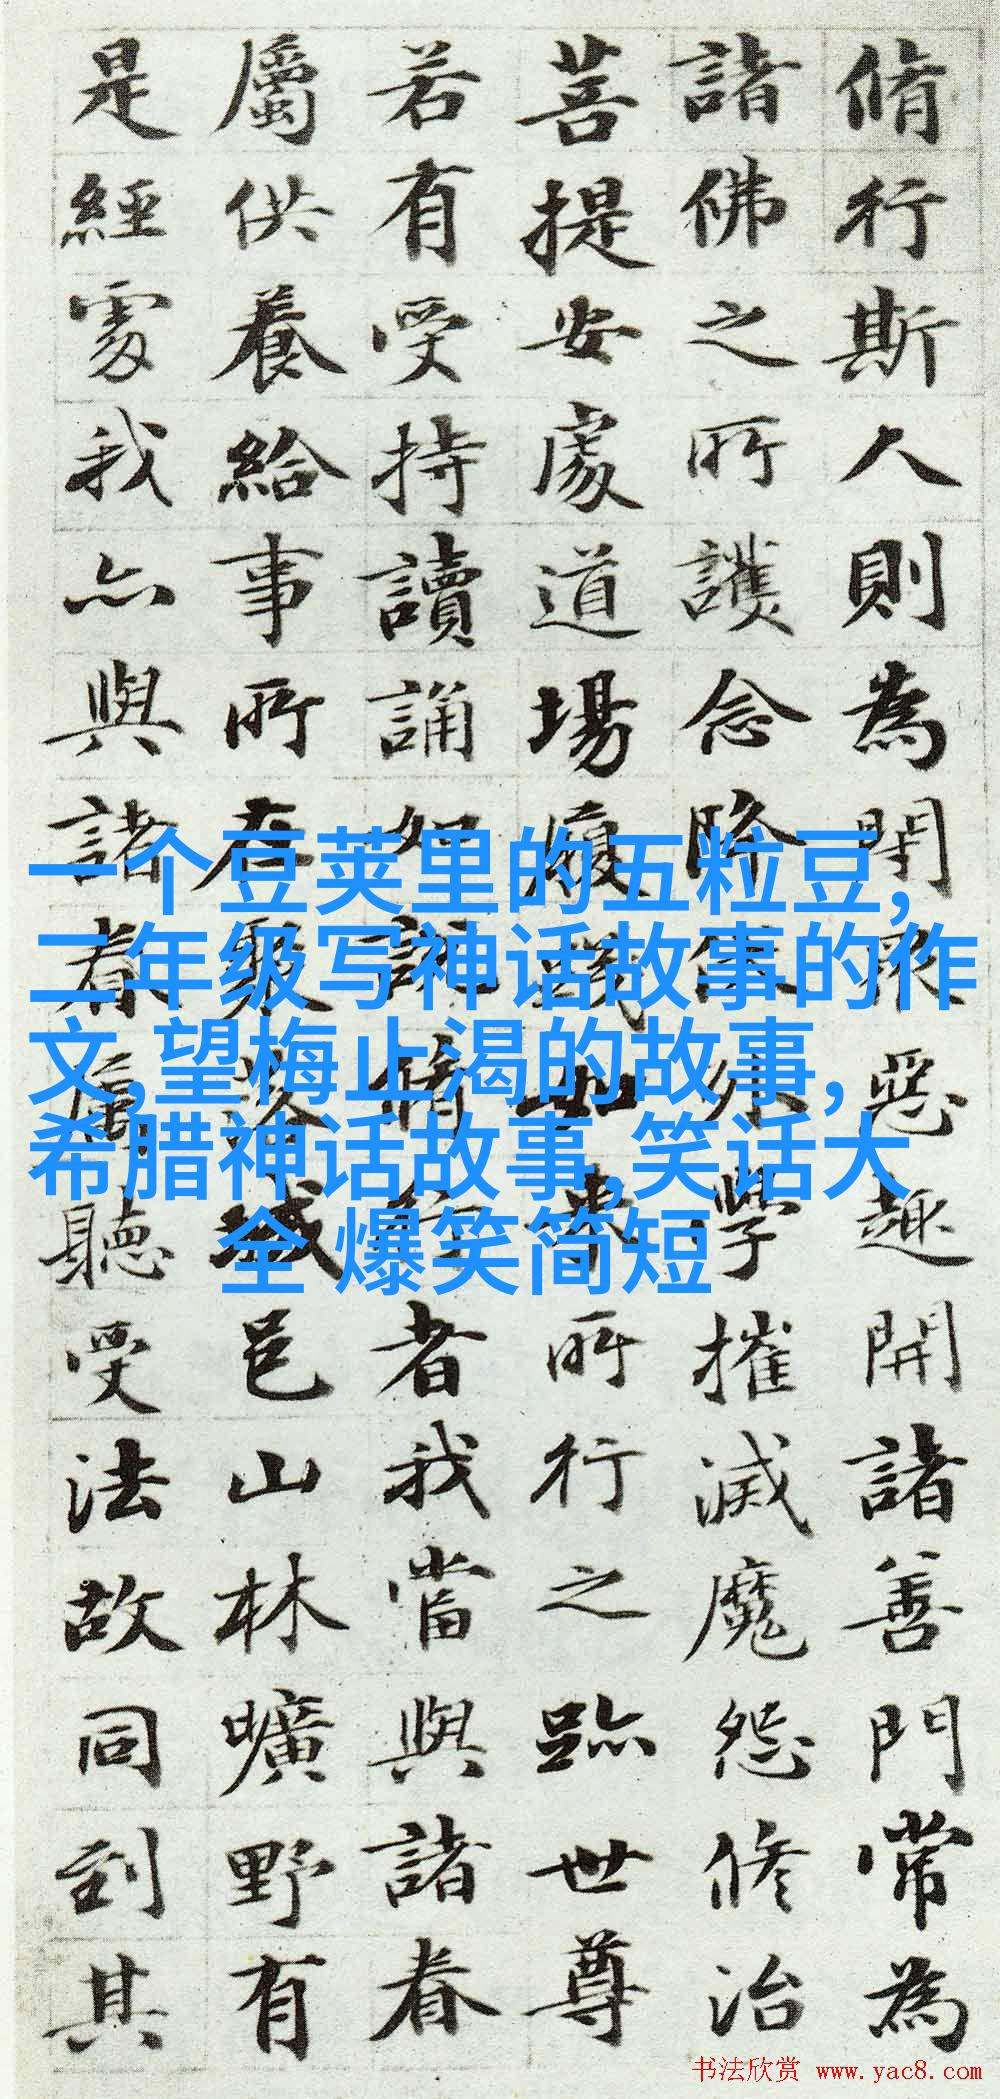 脩行斯人則為閇眾惡趣開諸善門常為
諸佛之所護念降伏外學摧滅魔怨修治
菩提安處道場履踐如來所行之跡世尊
若有受持讀誦如說脩行者我當與諸眷
屬供養給事所在聚落城邑山林曠野有
是經處我亦與諸眷屬聽受法故同到其
一个豆荚里的五粒豆,
二年级写神话故事的作
文,望梅止渴的故事,
希腊神话故事,笑话大
全 爆笑简短
书法欣赏 www.yac8.com